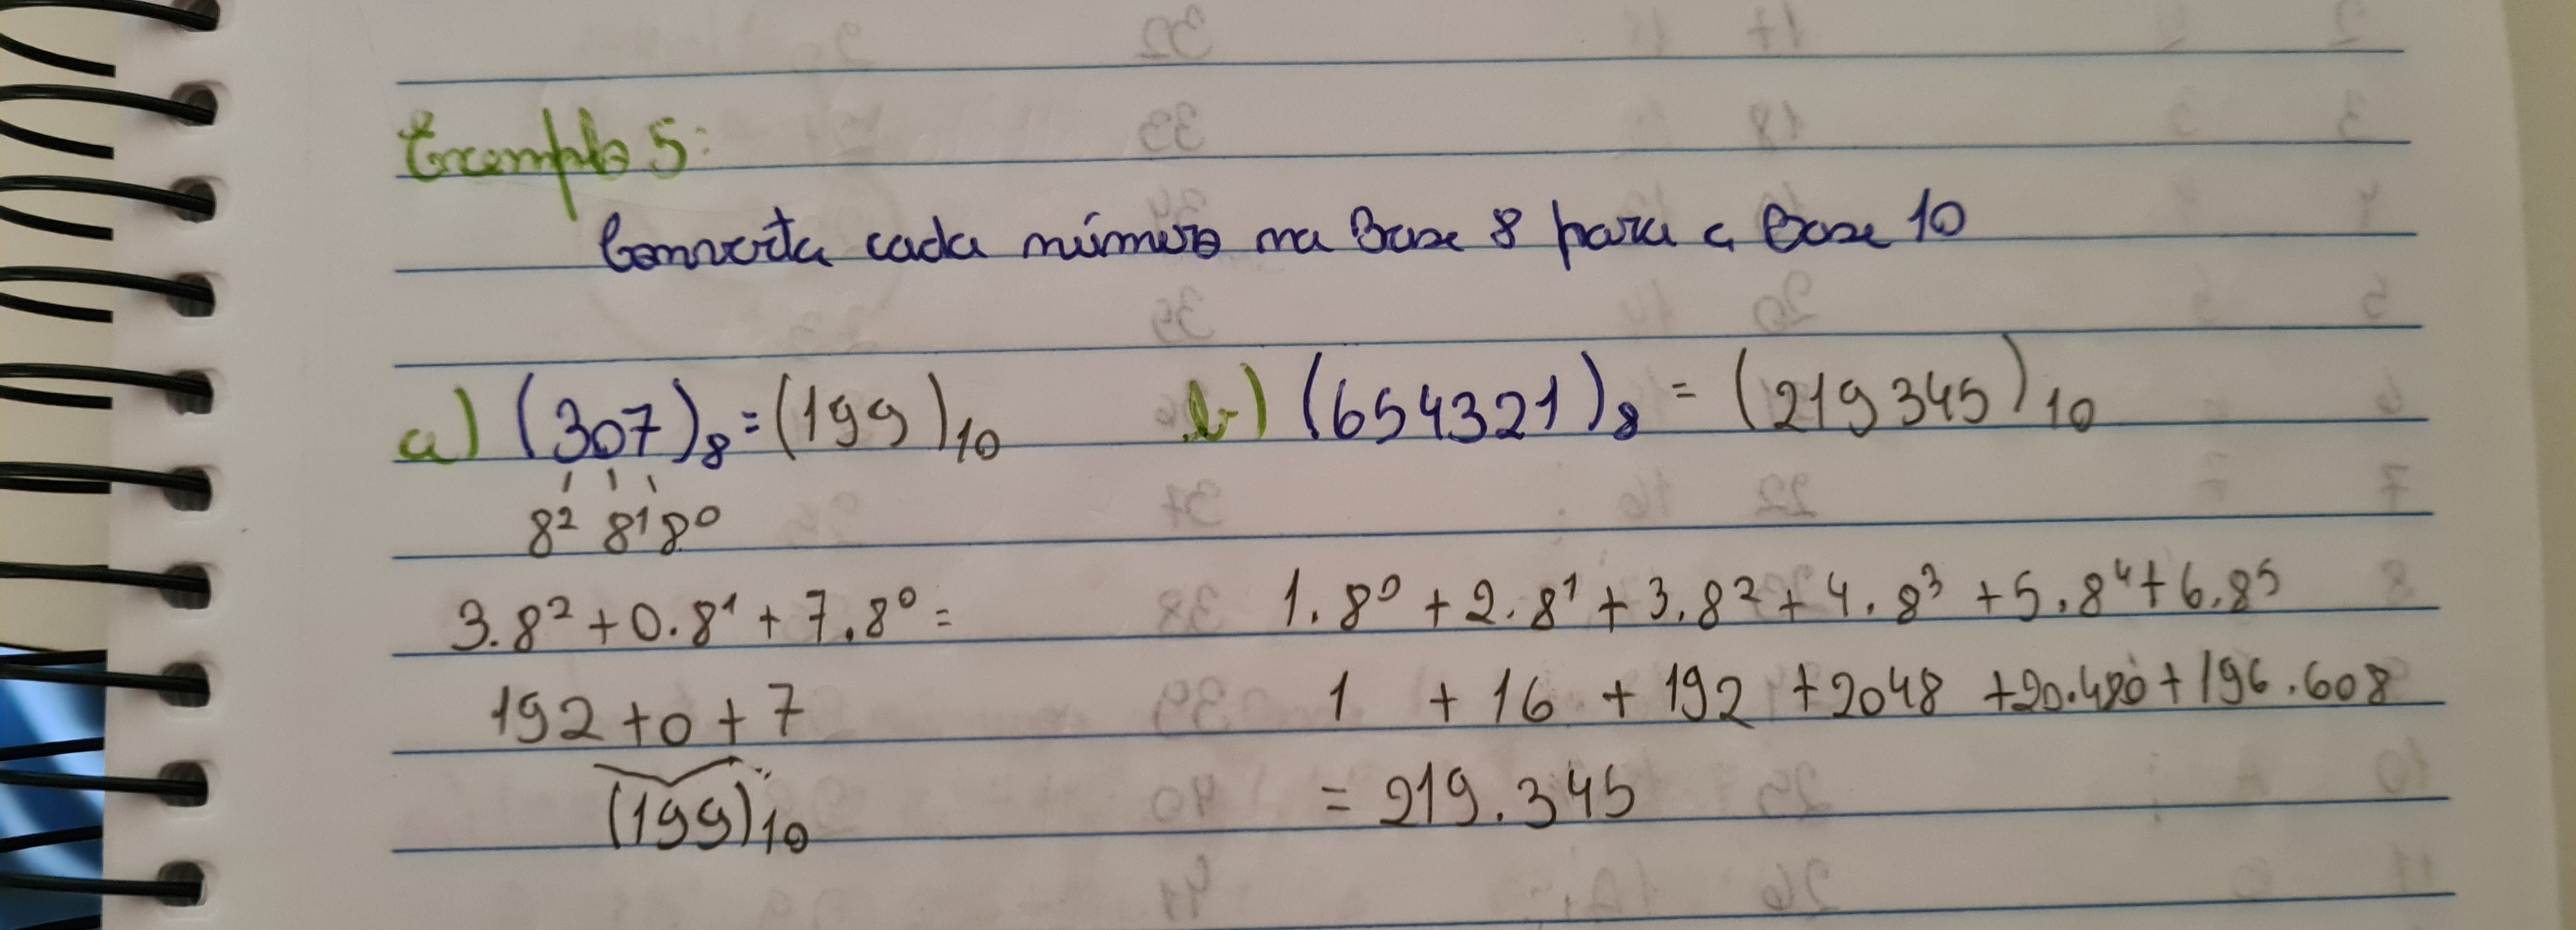 Exemplo 5:
Converta cada número na Base 8 para a Base 10
a) (307)₈ = (199)₁₀
8² 8¹ 8⁰
3.8² + 0.8¹ + 7.8⁰ =
192 + 0 + 7
(199)₁₀
b) (654321)₈ = (219345)₁₀
1.8⁰ + 2.8¹ + 3.8² + 4.8³ + 5.8⁴ + 6.8⁵
1 + 16 + 192 + 2048 + 20.480 + 196.608
= 219.345